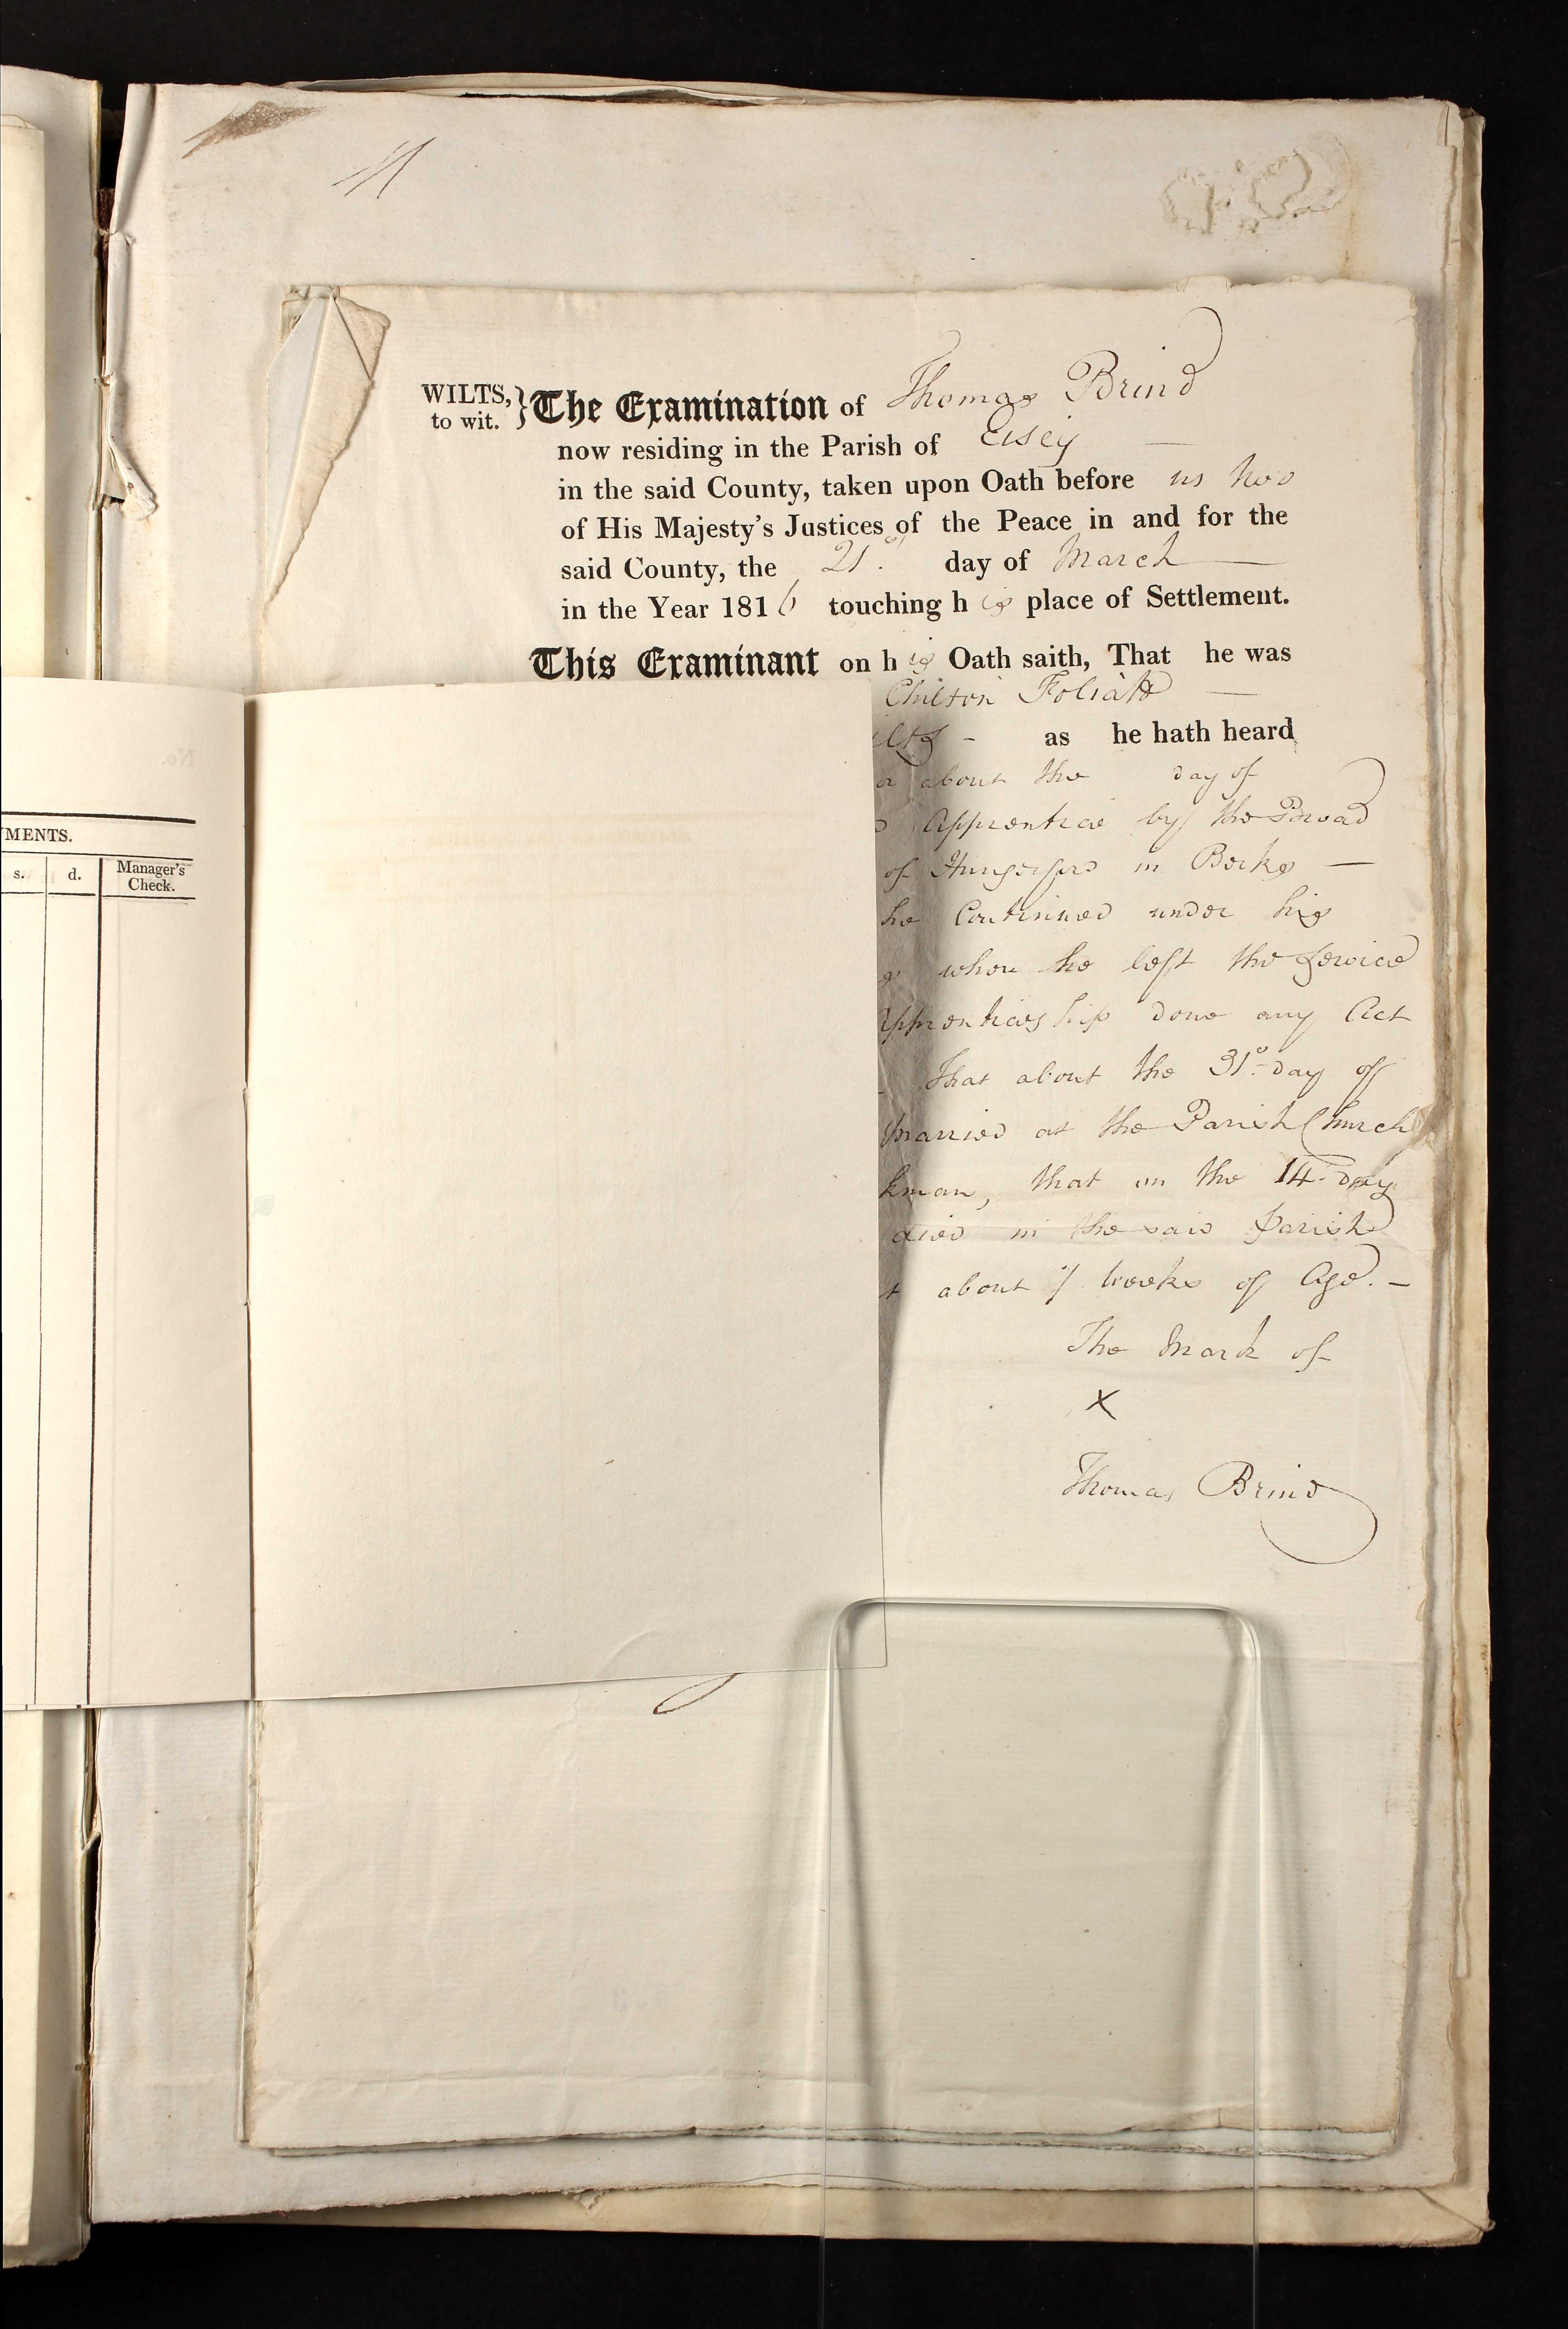 WILTS,
to wit.
The Examination of Thomas Brind
now residing in the Parish of Eisey
in the said County, taken upon Oath before us two
of His Majesty's Justices of the Peace in and for the
said County, the 21st day of March
in the Year 1816 touching his place of Settlement.
This Examinant on his Oath saith, That he was
Chilton Foliatt
ilts - as he hath heard
about the day of
Apprentice by the
of Hungerford in Berks
he Continued under his
when he left the Service
pprenticeship done any Act
That about the 31st day of
married at the Parish Church
kman, that on the 14 day
died in the said Parish
t about 7 weeks of Age. -
The Mark of
X
Thomas Brind
MENTS.
s. d. Manager's
Check.
No.